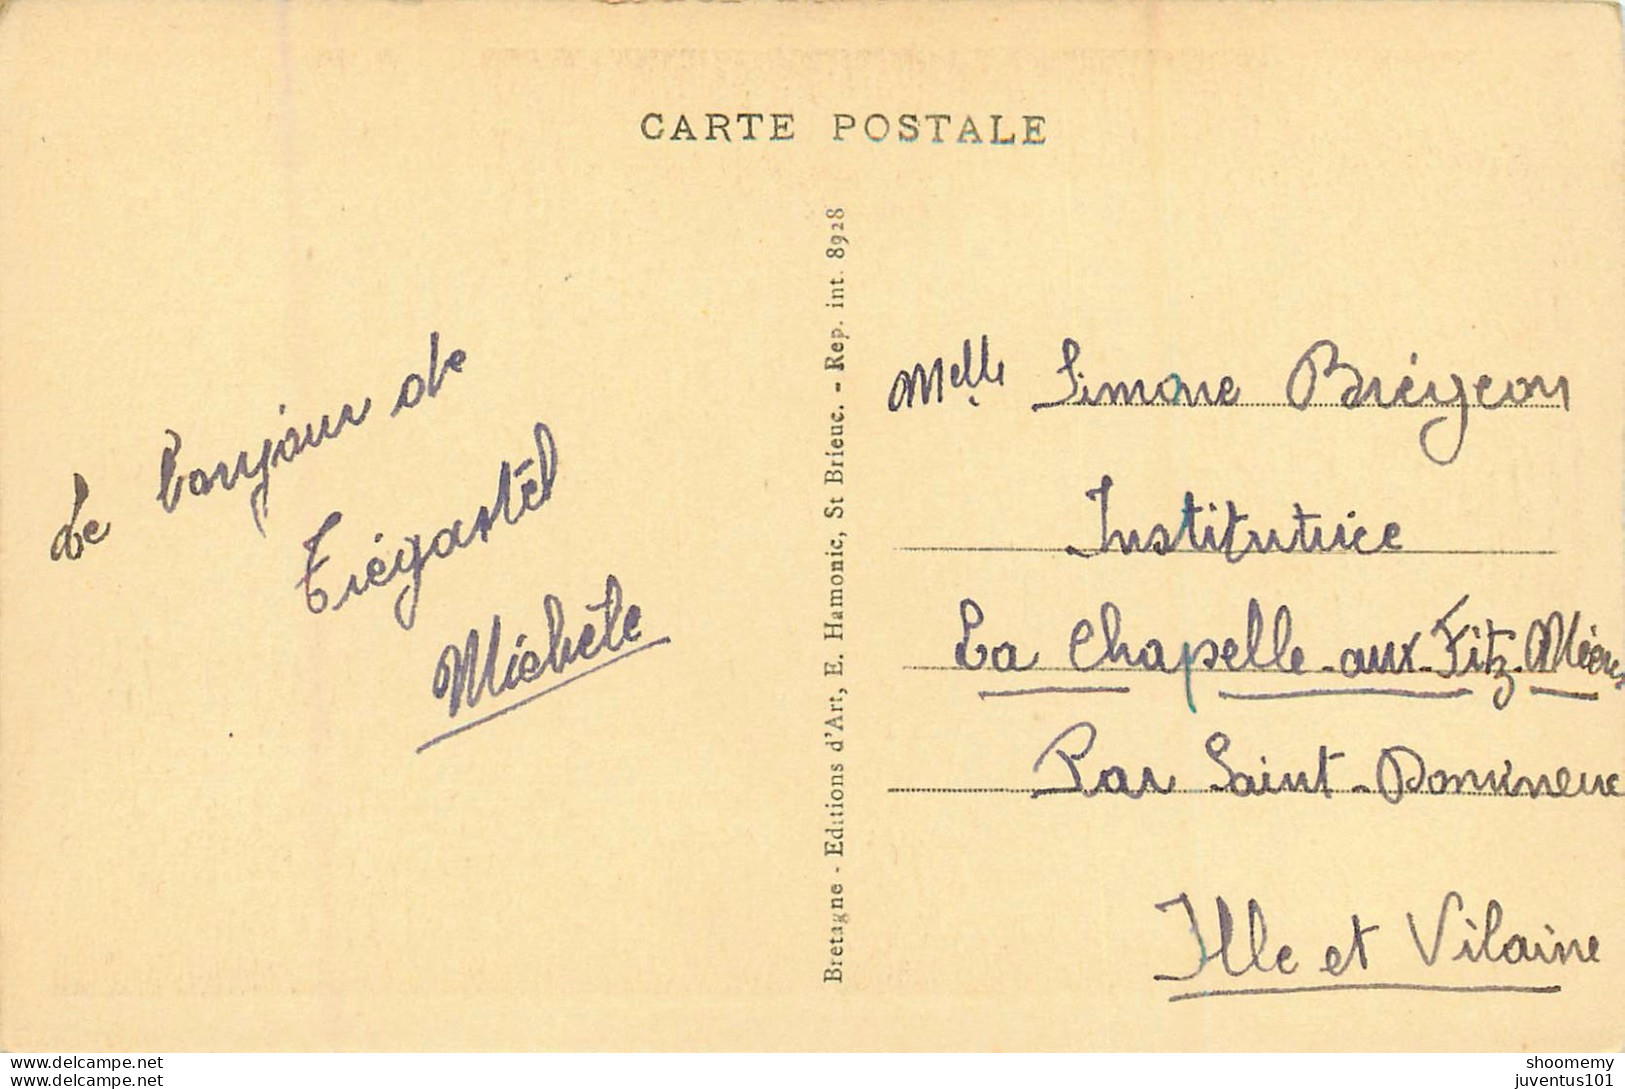 CARTE POSTALE
Le bonjour de
Trégastel
Michèle
Bretagne - Editions d'Art, E. Hamonic, St Brieuc. - Rep. int. 8928
Melle Simone Brégeon
Institutrice
La Chapelle-aux-Fitz-Méens
Par Saint-Domineuc
Ille et Vilaine
https://www.delcampe.net
https://www.delcampe.net
shoomemy
juventus101